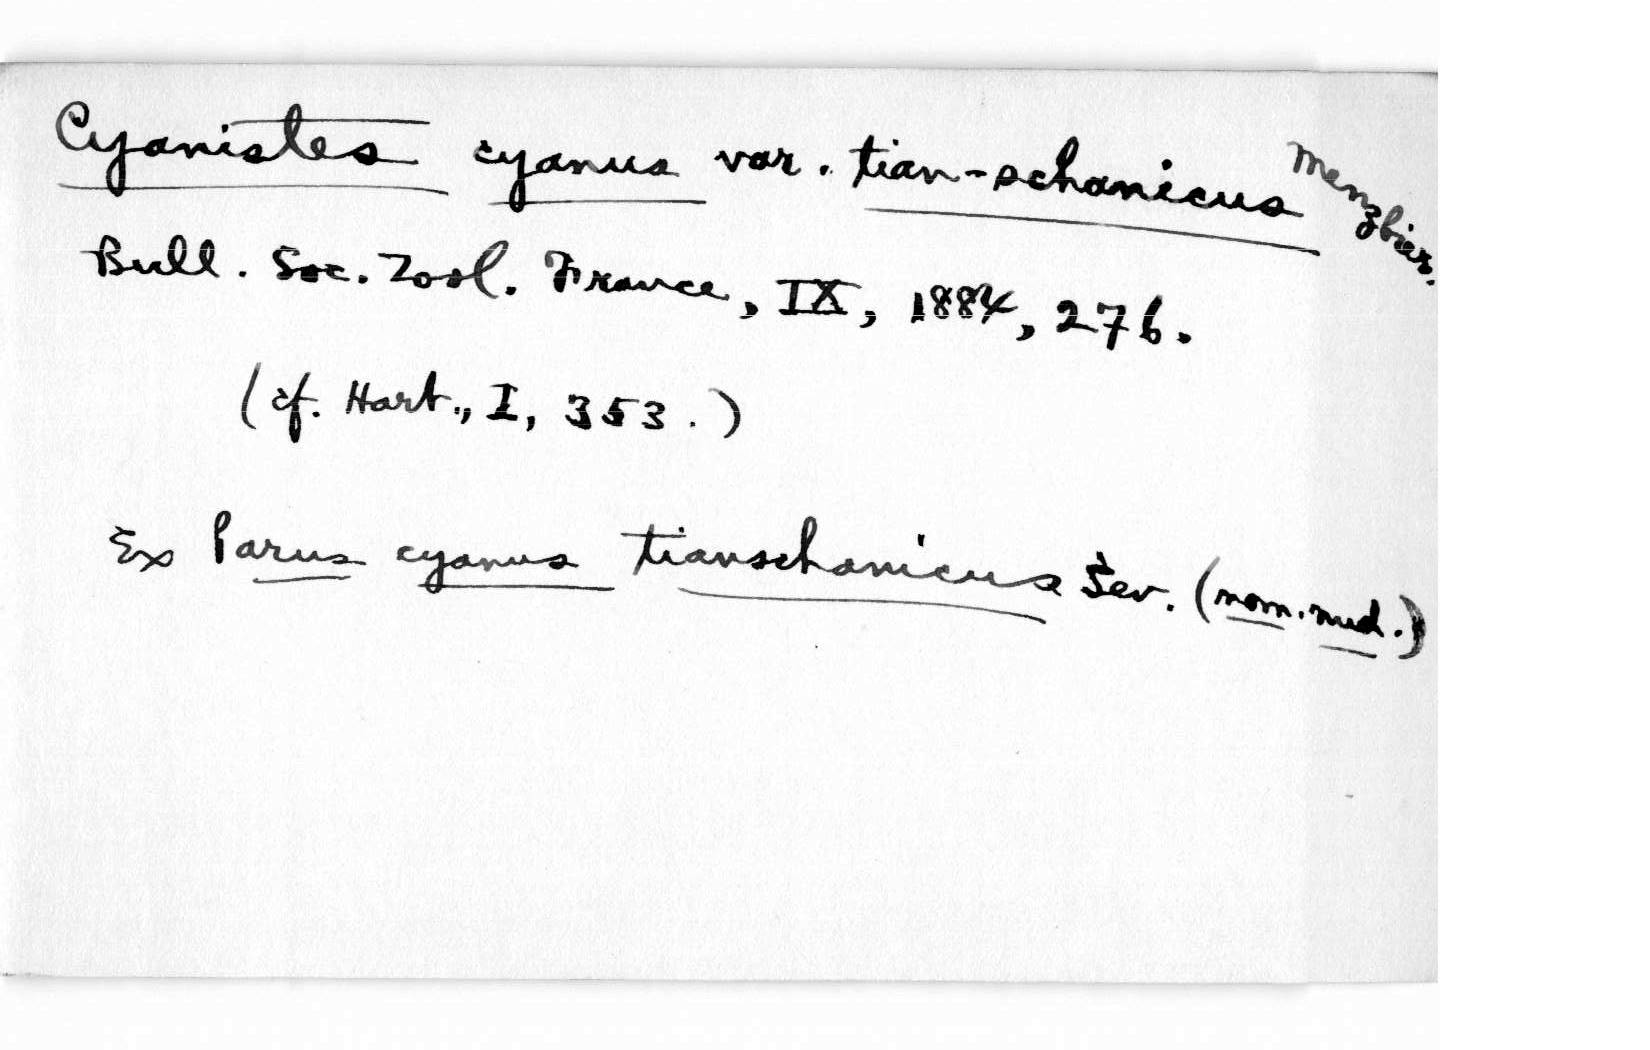 Cyanistes cyanus var. tian-schanicus Menzbier.
Bull. Soc. Zool. France, IX, 1884, 276.
(cf. Hart., I, 353.)
Ex Parus cyanus tianschanicus Sev. (nom. nud.)